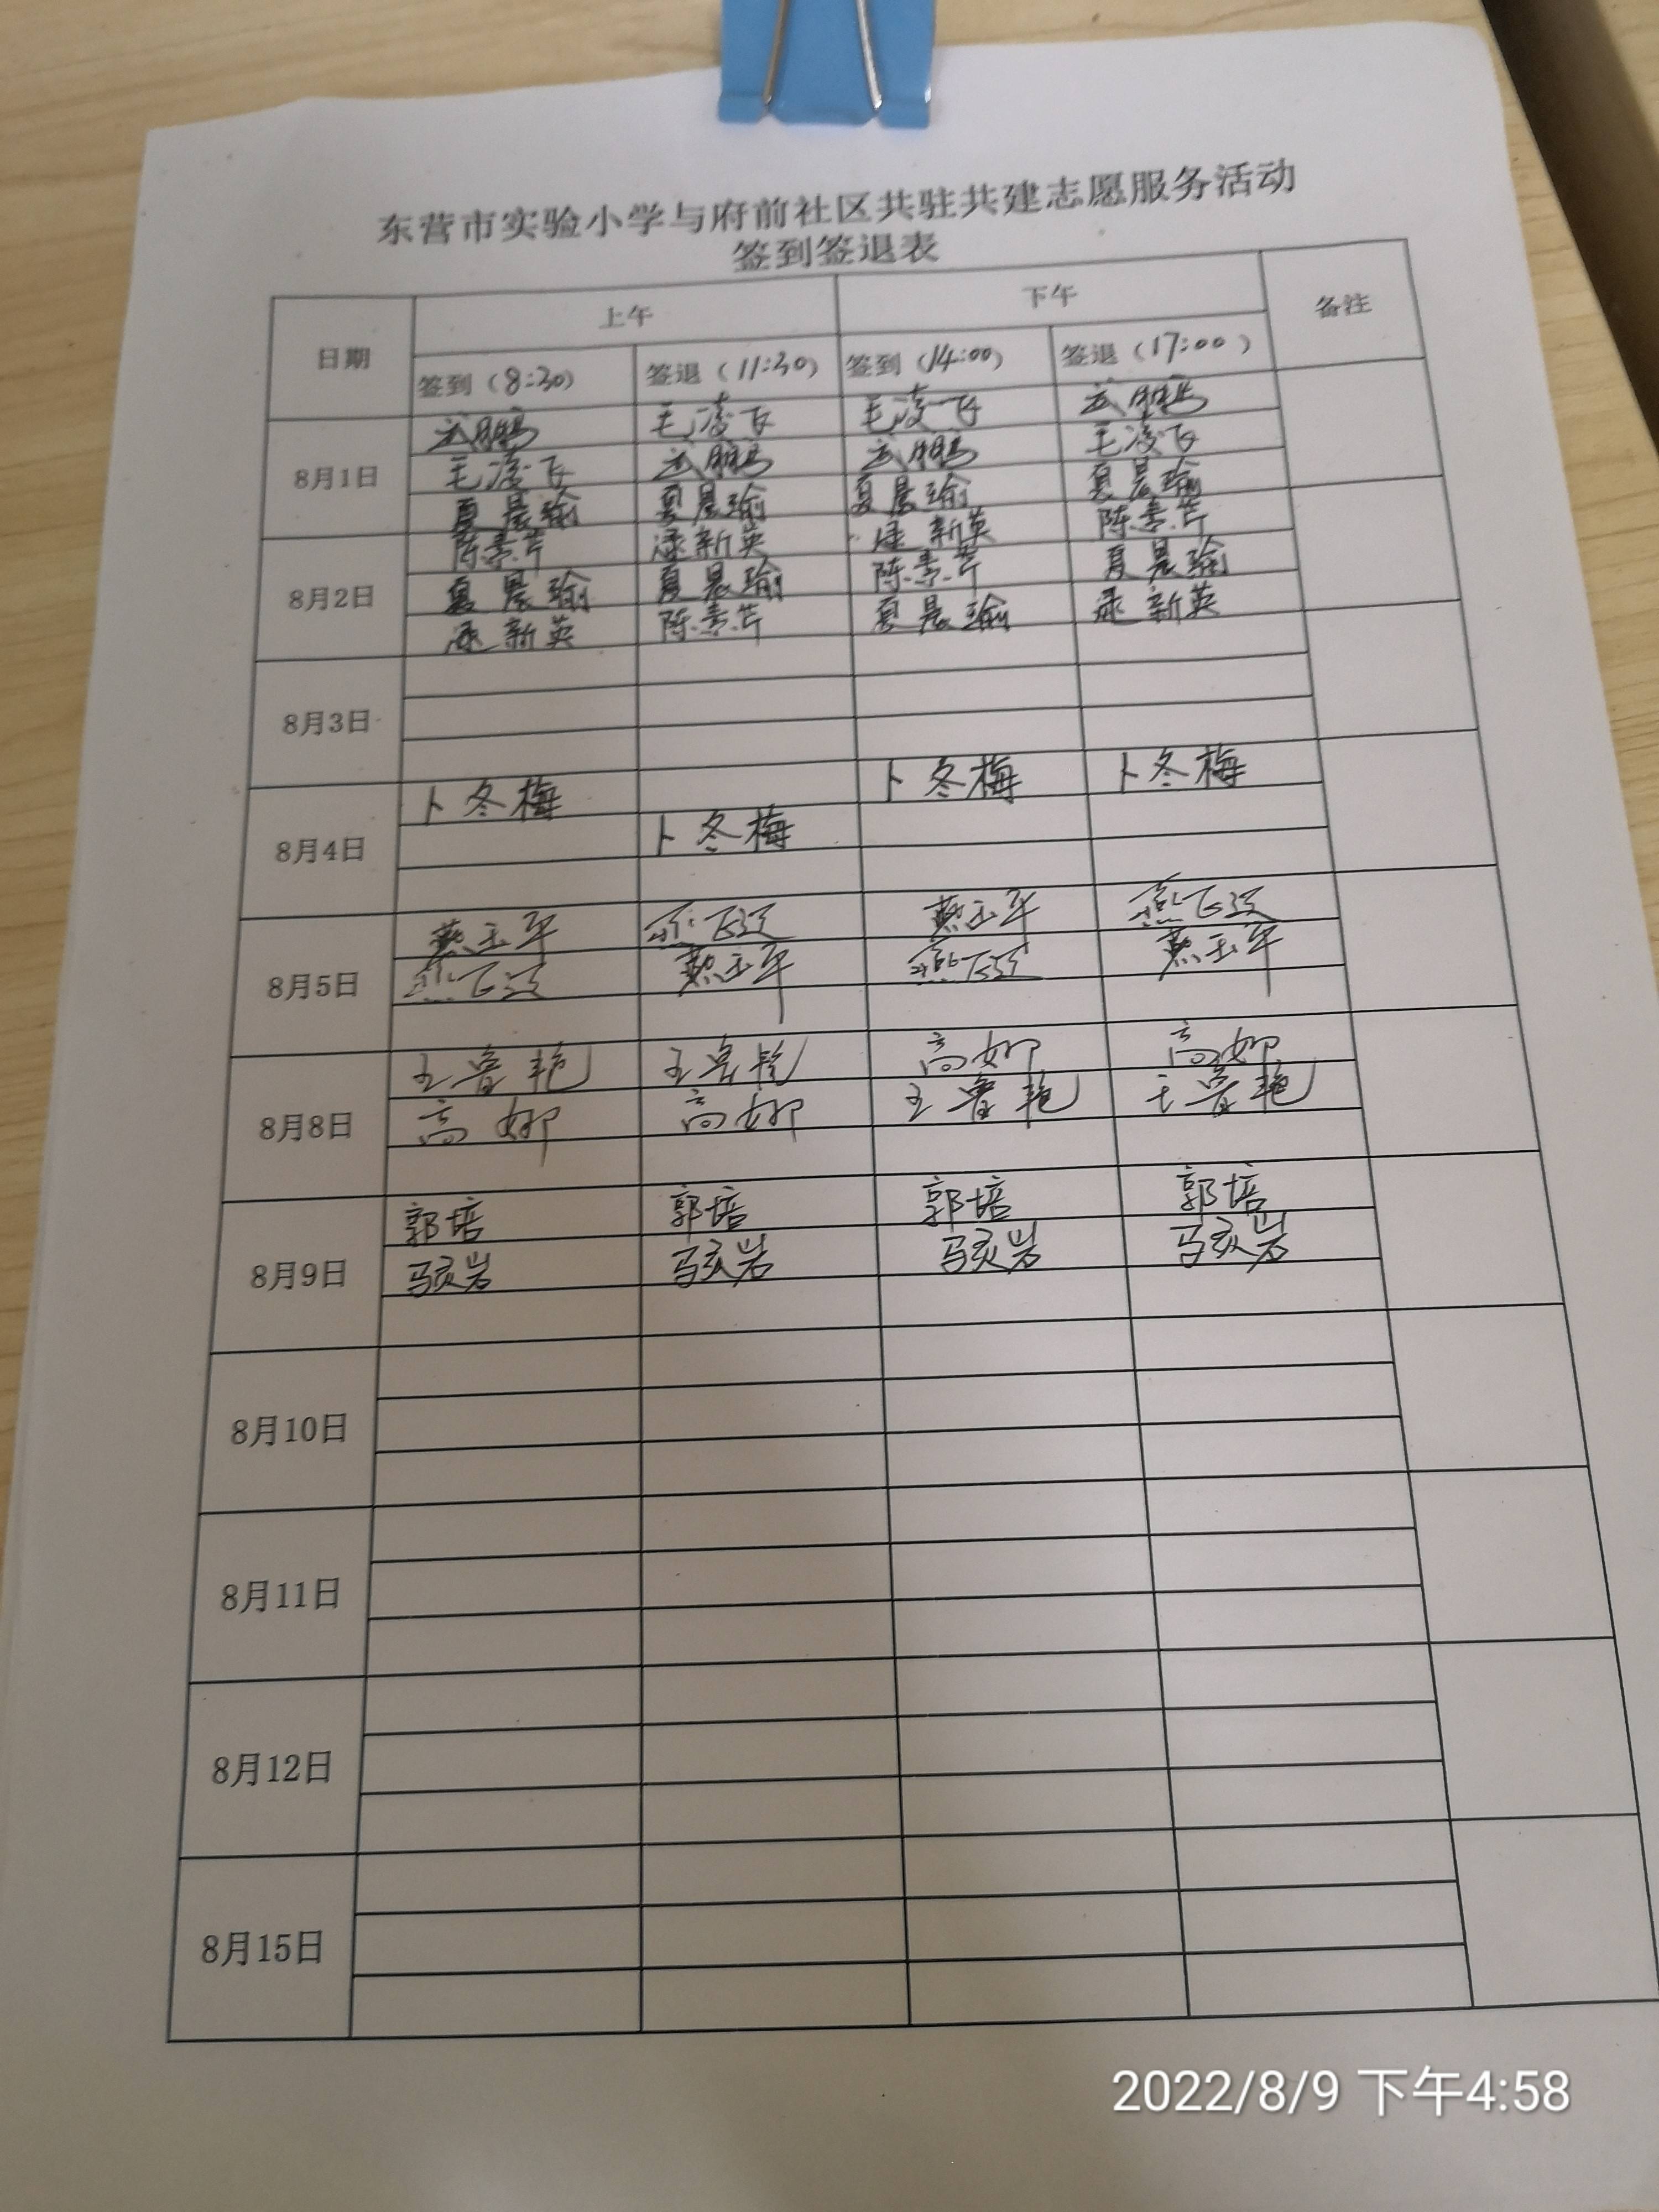 东营市实验小学与府前社区共驻共建志愿服务活动
签到签退表
日期 上午 下午 备注
签到（8:30） 签退（11:30） 签到（14:00） 签退（17:00）
武鹏 毛凌飞 毛凌飞 武鹏
8月1日 毛凌飞 武鹏 武鹏 毛凌飞
夏晨瑜 夏晨瑜 夏晨瑜 夏晨瑜
陈素芹 新英 新英 陈素芹
8月2日 夏晨瑜 夏晨瑜 陈素芹 夏晨瑜
新英 陈素芹 夏晨瑜 新英
8月3日
卜冬梅 卜冬梅 卜冬梅
8月4日 卜冬梅
燕玉平 燕玉平
8月5日 燕玉平 燕玉平
王鲁艳 王鲁艳 高娜 高娜
8月8日 高娜 高娜 王鲁艳 王鲁艳
郭培 郭培 郭培 郭培
8月9日 马岩 马岩 马岩 马岩
8月10日
8月11日
8月12日
8月15日
2022/8/9 下午4:58